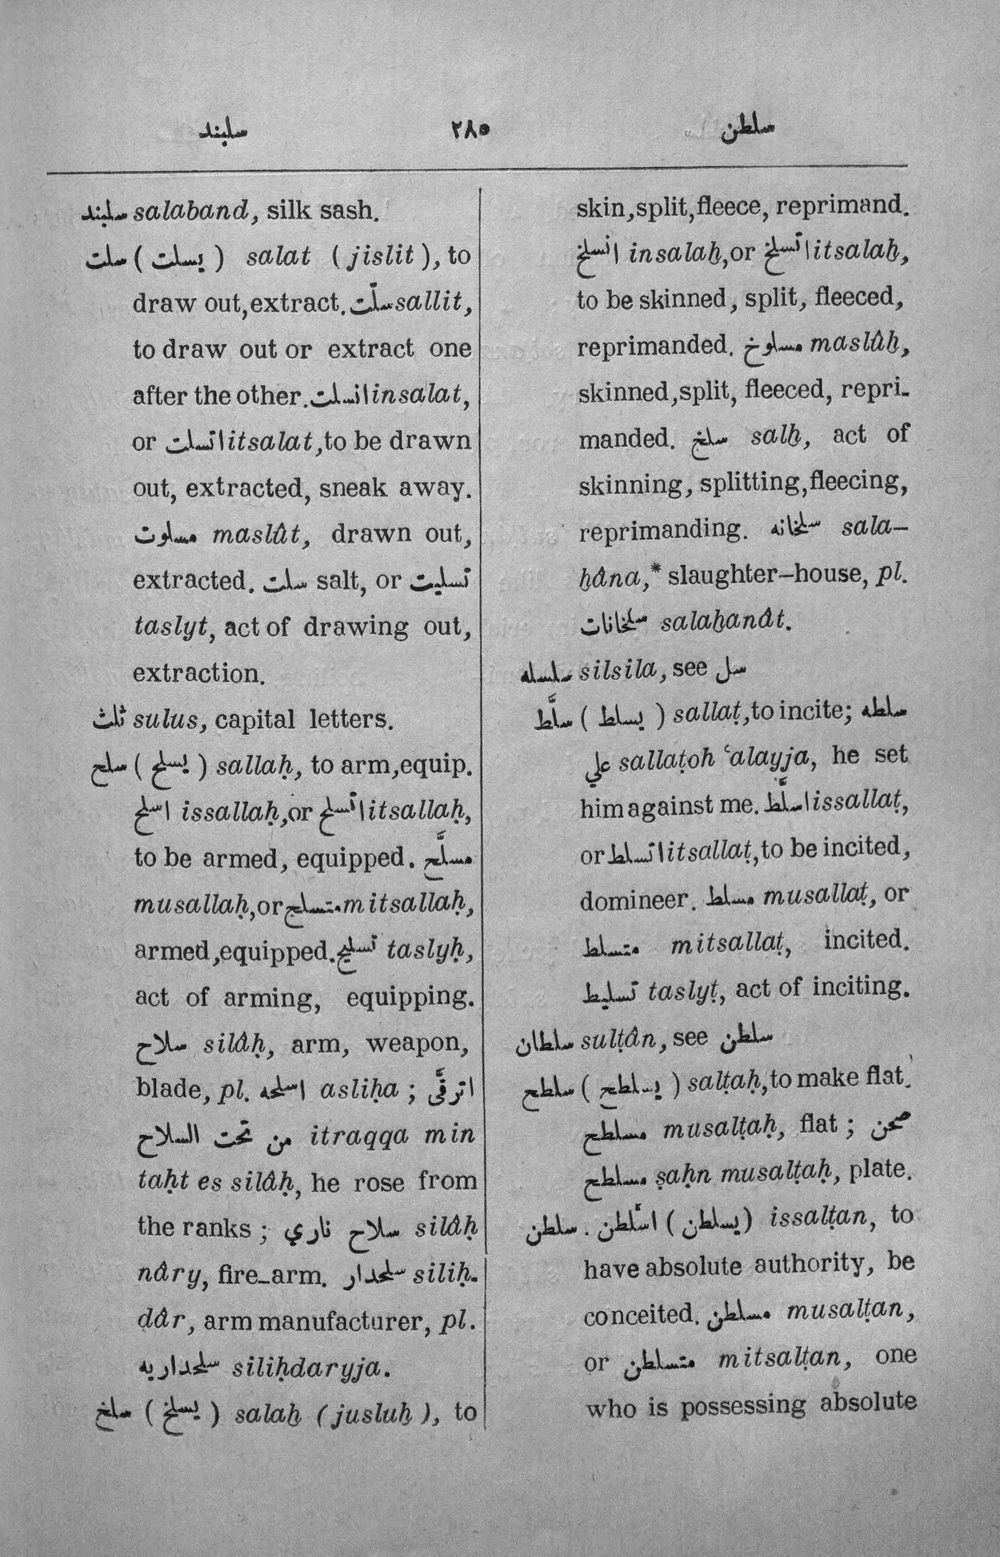 سلبند ٢٨٥ سلطن
سلبند salaband, silk sash.
سلت ( يسلت ) salat (jislit), to
draw out, extract. سلّت sallit,
to draw out or extract one
after the other. انسلت insalat,
or اتسلت itsalat, to be drawn
out, extracted, sneak away.
مسلوت maslût, drawn out,
extracted. سلت salt, or تسليت
taslyt, act of drawing out,
extraction.
ثلث sulus, capital letters.
سلح ( يسلح ) sallaḥ, to arm, equip.
اسلح issallaḥ, or اتسلح itsallaḥ,
to be armed, equipped. مسلَّح
musallaḥ, or متسلح mitsallaḥ,
armed, equipped. تسليح taslyḥ,
act of arming, equipping.
سلاح silâḥ, arm, weapon,
blade, pl. اسلحه asliḥa ; اترقَّى
من تحت السلاح itraqqa min
taḥt es silâḥ, he rose from
the ranks ; سلاح ناري silâḥ
nâry, fire-arm. سلحدار siliḥ-
dâr, arm manufacturer, pl.
سلحداريه siliḥdaryja.
سلخ ( يسلخ ) salaḫ (jusluḫ), to
skin, split, fleece, reprimand.
انسلخ insalaḫ, or اتسلخ itsalaḫ,
to be skinned, split, fleeced,
reprimanded. مسلوخ maslûḫ,
skinned, split, fleeced, repri-
manded. سلخ salḫ, act of
skinning, splitting, fleecing,
reprimanding. سلخانه sala-
ḫâna,* slaughter-house, pl.
سلخانات salaḫanât.
سلسله silsila, see سل
سلَّط ( يسلط ) sallaṭ, to incite; سلطه
علي sallaṭoh ʿalayja, he set
him against me. اسلَّط issallaṭ,
or اتسلط itsallaṭ, to be incited,
domineer. مسلط musallaṭ, or
متسلط mitsallaṭ, incited.
تسليط taslyṭ, act of inciting.
سلطان sulṭân, see سلطن
سلطح ( يسلطح ) salṭaḥ, to make flat.
مسلطح musalṭaḥ, flat ; صحن
مسلطح ṣaḥn musalṭaḥ, plate.
سلطن . اسَّلطن (يسلطن) issalṭan, to
have absolute authority, be
conceited. مسلطن musalṭan,
or متسلطن mitsalṭan, one
who is possessing absolute